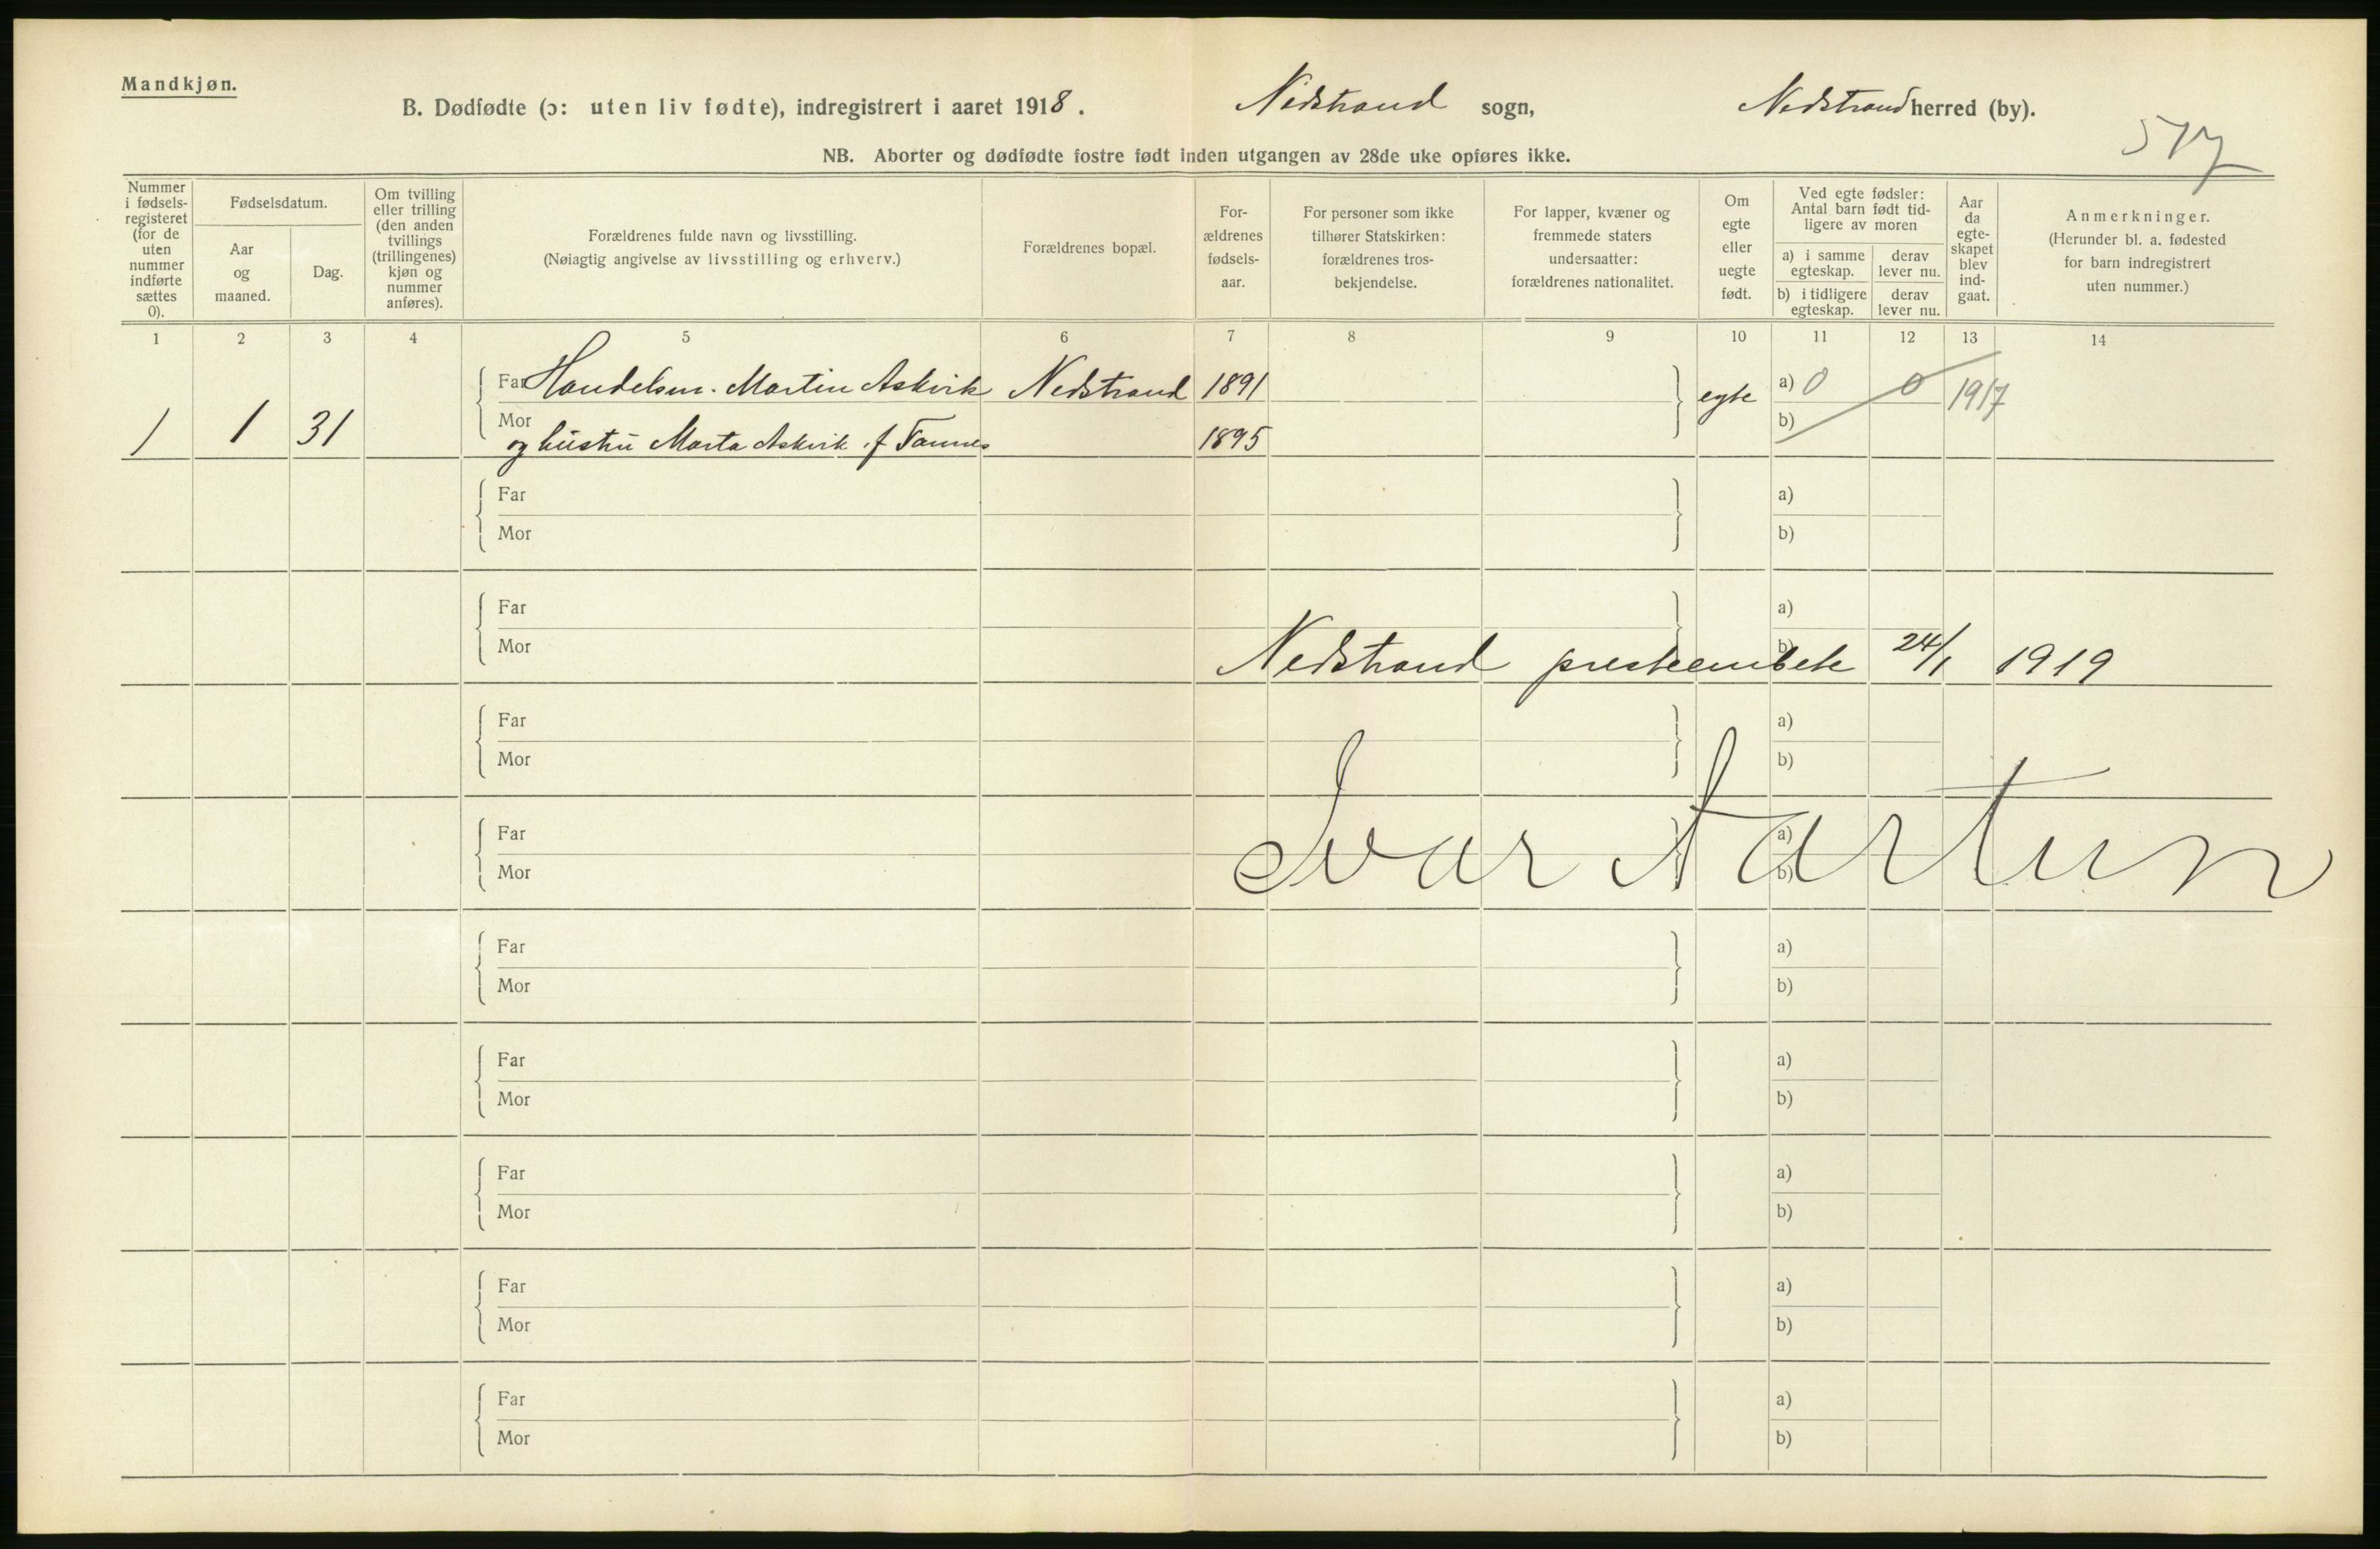 Mandkjøn.
B. Dødfødte (ɔ: uten liv fødte), indregistrert i aaret 1918. Nedstrand sogn, Nedstrand herred (by).
517
NB. Aborter og dødfødte fostre født inden utgangen av 28de uke opføres ikke.
Nummer i fødsels-registeret (for de uten nummer indførte sættes 0).
Fødselsdatum.
Aar og maaned.
Dag.
Om tvilling eller trilling (den anden tvillings (trillingenes) kjøn og nummer anføres).
Forældrenes fulde navn og livsstilling.
(Nøiagtig angivelse av livsstilling og erhverv.)
Forældrenes bopæl.
For-ældrenes fødsels-aar.
For personer som ikke tilhører Statskirken: forældrenes tros-bekjendelse.
For lapper, kvæner og fremmede staters undersaatter: forældrenes nationalitet.
Om egte eller uegte født.
Ved egte fødsler: Antal barn født tid-ligere av moren
a) i samme egteskap.
derav lever nu.
b) i tidligere egteskap.
derav lever nu.
Aar da egte-skapet blev ind-gaat.
Anmerkninger.
(Herunder bl. a. fødested for barn indregistrert uten nummer.)
1 2 3 4 5 6 7 8 9 10 11 12 13 14
Far Handelsm. Martin Askvik Nedstrand 1891 egte a) 0 0 1917
1 1 31 Mor og hustru Marta Askvik f. 1895 b)
Far a)
Mor b)
Far a)
Mor b)
Nedstrand presteembete 24/1 1919
Far a)
Mor b)
Ivar Aartun
Far a)
Mor b)
Far a)
Mor b)
Far a)
Mor b)
Far a)
Mor b)
Far a)
Mor b)
Far a)
Mor b)